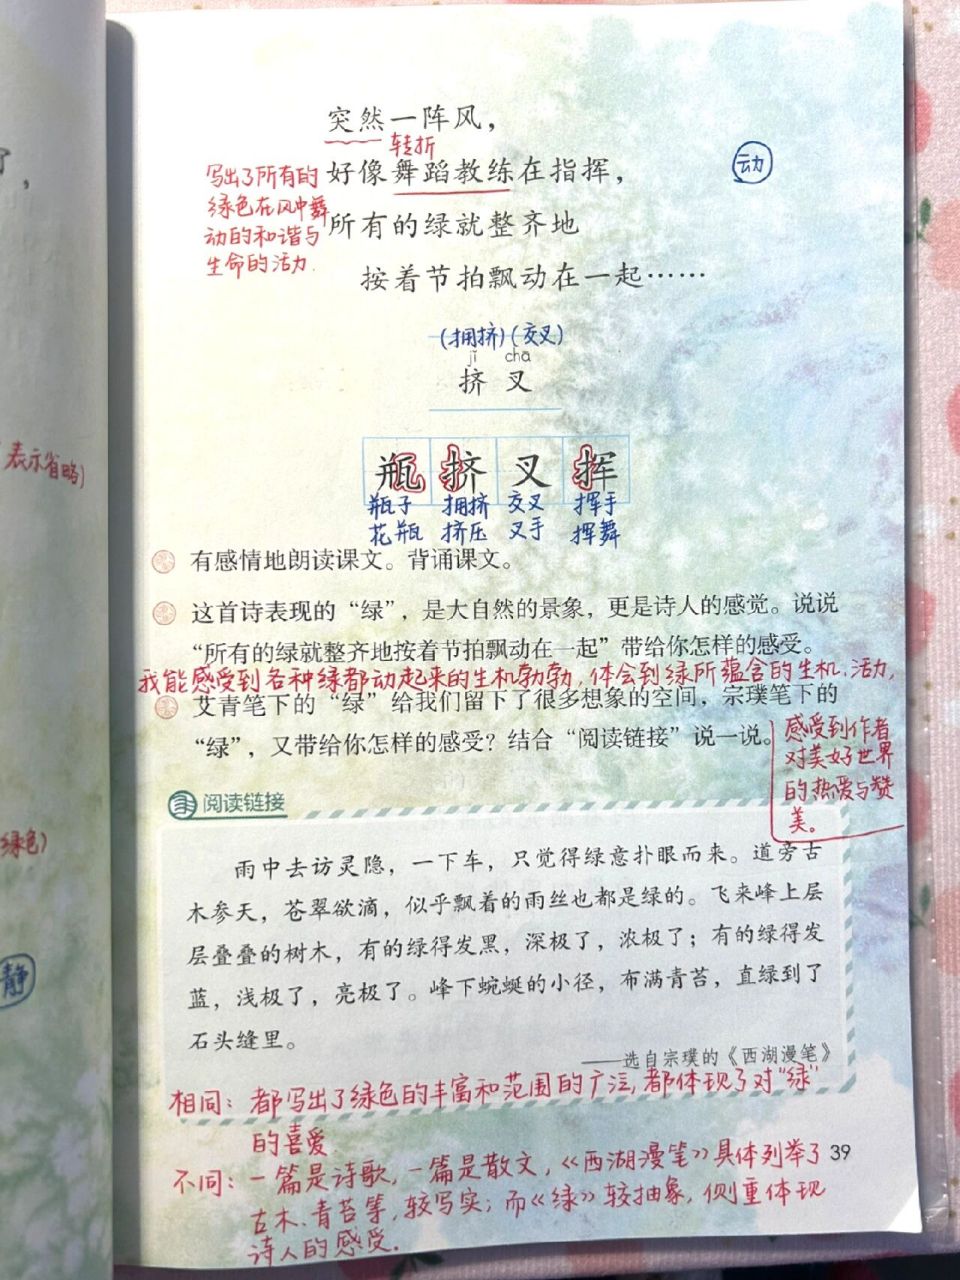 了，
突然一阵风，
转折
好像舞蹈教练在指挥，
动
写出了所有的
绿色在风中舞
动的和谐与
生命的活力.
所有的绿就整齐地
按着节拍飘动在一起……
(拥挤)(交叉)
jǐ chā
挤 叉
表示省略)
瓶 挤 叉 挥
瓶子 拥挤 交叉 挥手
花瓶 挤压 叉手 挥舞
有感情地朗读课文。背诵课文。
这首诗表现的“绿”，是大自然的景象，更是诗人的感觉。说说
“所有的绿就整齐地按着节拍飘动在一起”带给你怎样的感受。
我能感受到各种绿都动起来的生机勃勃，体会到绿所蕴含的生机、活力，
艾青笔下的“绿”给我们留下了很多想象的空间，宗璞笔下的
“绿”，又带给你怎样的感受？结合“阅读链接”说一说。
感受到作者
对美好世界
的热爱与赞
美。
绿色)
阅读链接
雨中去访灵隐，一下车，只觉得绿意扑眼而来。道旁古
木参天，苍翠欲滴，似乎飘着的雨丝也都是绿的。飞来峰上层
层叠叠的树木，有的绿得发黑，深极了，浓极了；有的绿得发
蓝，浅极了，亮极了。峰下蜿蜒的小径，布满青苔，直绿到了
石头缝里。
静
——选自宗璞的《西湖漫笔》
相同：都写出了绿色的丰富和范围的广泛，都体现了对“绿”
的喜爱
不同：一篇是诗歌，一篇是散文，《西湖漫笔》具体列举了
古木、青苔等，较写实；而《绿》较抽象，侧重体现
诗人的感受.
39